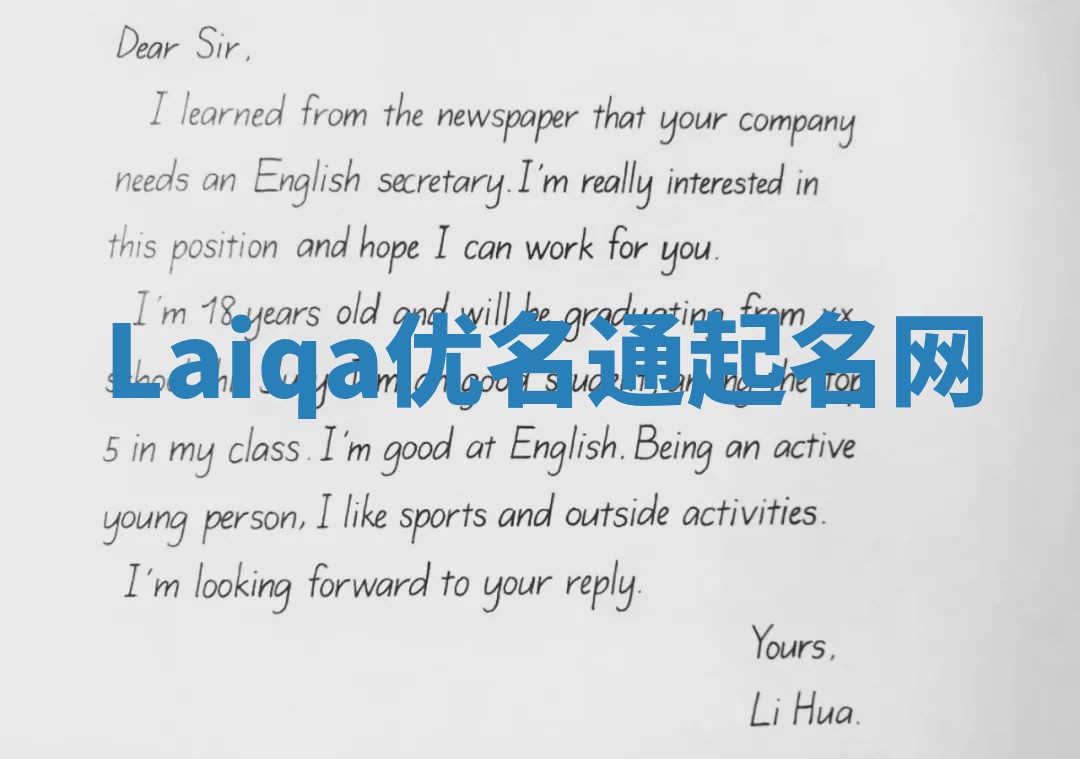 Dear Sir,
I learned from the newspaper that your company
needs an English secretary. I'm really interested in
this position and hope I can work for you.
I'm 18 years old and will be graduating from xx
Laiqa优名通起名网
school I'm good student, among the top
5 in my class. I'm good at English. Being an active
young person, I like sports and outside activities.
I'm looking forward to your reply.
Yours,
Li Hua.